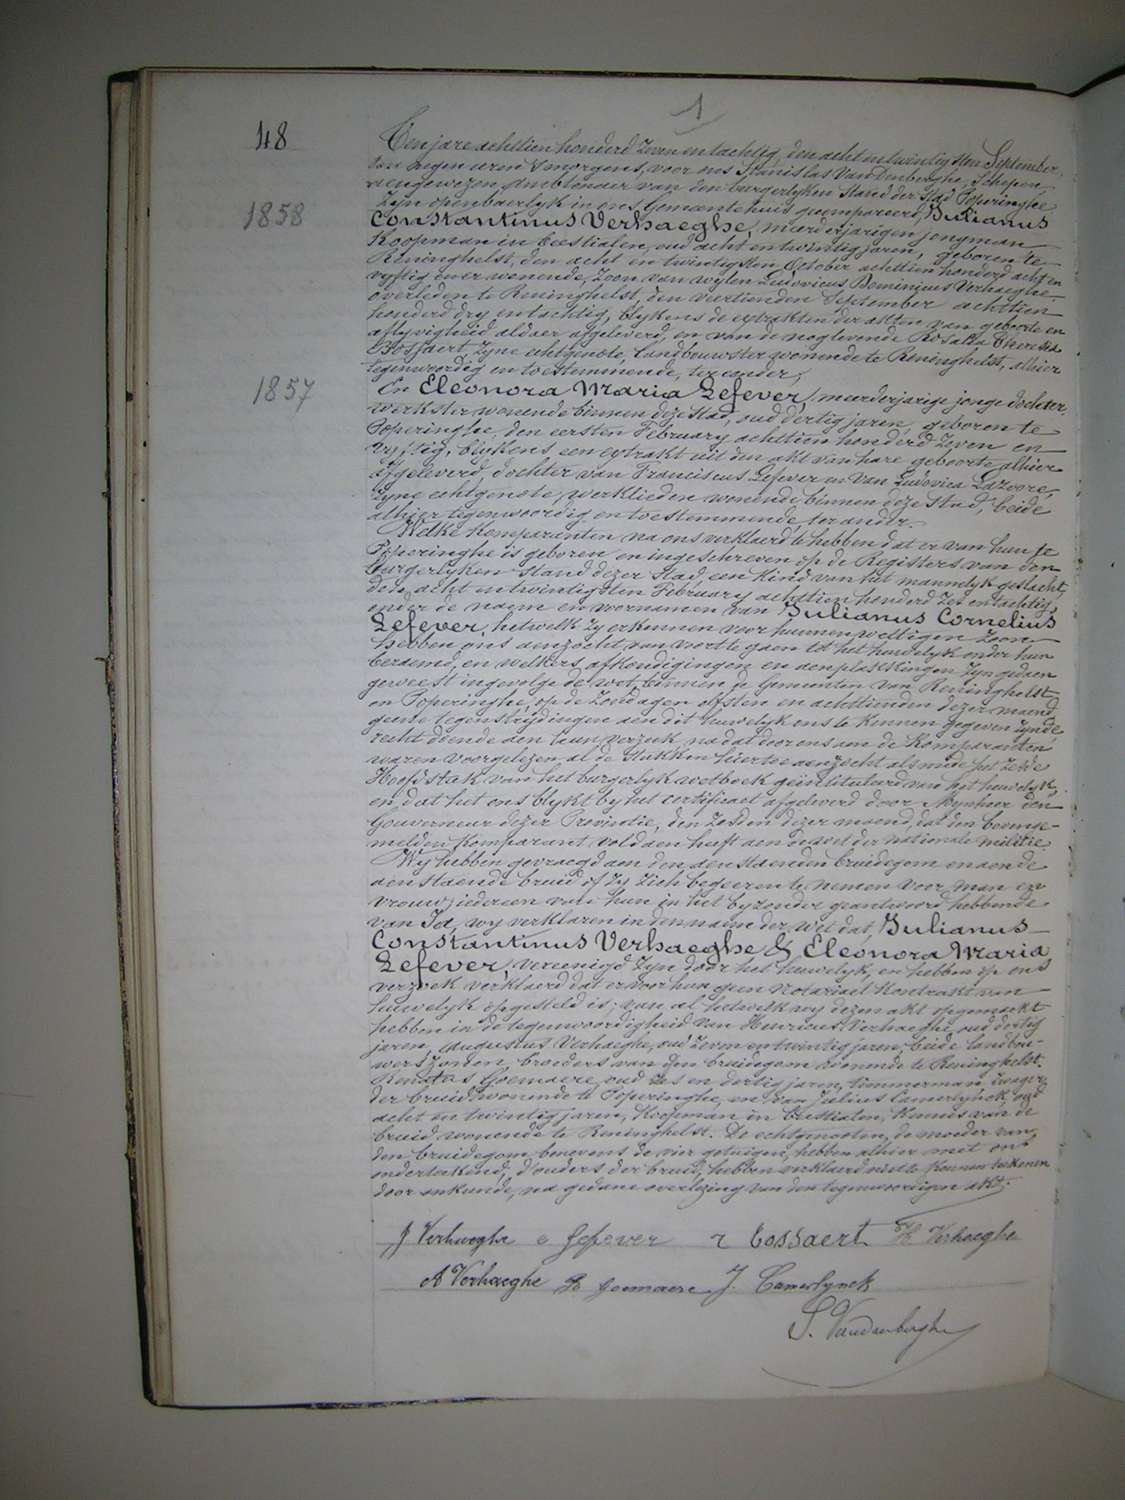 1
48
Ten jare achttien honderd Zeven en tachtig, den acht en twintigsten September,
ten negen uren 's morgens, voor ons Stanislas Vandenberghe, Schepen
aengewezen Ambtenaer van den burgerlyken Stand der Stad Poperinghe
Zyn openbaerlyk in ons Gemeentehuis gecompareerd, Julianus
1858
Constantinus Verhaeghe, meerderjarigen jongman
Koopman in beestialen, oud acht en twintig jaren, geboren te
Reninghelst, den acht en twintigsten October achttien honderd acht en
vyftig en er wonende, Zoon van wylen Ludovicus Dominicus Verhaeghe
overleden te Reninghelst, den veertienden September achttien
honderd dry en tachtig, blykens de extrakten der akten van geboorte en
aflyvigheid aldaer afgeleverd, en van de nog levende Rosalia Theresia
Bossaert, Zyne echtgenote, landbouwster wonende te Reninghelst, alhier
tegenwoordig en toestemmende, ter eender;
1857
En Eleonora Maria Lefever, meerderjarige jonge dochter,
werkster wonende binnen deze Stad, oud dertig jaren, geboren te
Poperinghe, den eersten February achttien honderd Zeven en
vyftig, blykens een extrakt uit den akt van hare geboorte alhier
afgeleverd, dochter van Franciscus Lefever en van Ludovica Lazoore,
Zyne echtgenote, werklieden wonende binnen deze Stad, beide
alhier tegenwoordig en toestemmende ter ander.
Welke Komparanten na ons verklaerd te hebben dat er van hun te
Poperinghe is geboren en ingeschreven op de Registers van den
burgerlyken Stand dezer Stad, een Kind van het mannelyk geslacht,
den acht en twintigsten February achttien honderd Zes en tachtig,
onder de naem en voornamen van Julianus Cornelius
Lefever, hetwelk Zy erkennen voor hunnen wettigen Zoon
Hebben ons aenzocht van voort te gaen tot het huwelyk onder hun
beraemd, en welkers afkondigingen en aenplakkingen Zyn gedaen
geweest ingevolge de wet, binnen de Gemeenten van Reninghelst
en Poperinghe, op de Zondagen elfsten en achttienden dezer maend
geene tegenstrydingen aen dit huwelyk ons te kennen gegeven Zynde,
recht doende aen hun verzoek, na dat door ons aen de Komparanten
waren voorgelezen al de Stukken hiertoe aenzocht alsmede het Zesde
Hoofdstuk van het burgerlyk wetboek geïntituleerd van het huwelyk,
en dat het ons blykt by het certificaet afgeleverd door Mynheer den
Gouverneur dezer Provintie, den Zesden dezer maend, dat den bovenge-
melden Komparant voldaen heeft aen de wet der nationale militie.
Wy hebben gevraegd aen den aenstaenden bruidegom en aen de
aenstaende bruid of Zy Zich begeeren te nemen voor man en
vrouw; iedereen van hun in het byzonder geantwoord hebbende
van Ja, wy verklaren in den naem der wet dat, Julianus
Constantinus Verhaeghe & Eleonora Maria
Lefever, vereenigd Zyn door het huwelyk, en hebben op ons
verzoek verklaerd dat er voor hun geen notariael Kontrakt van
huwelyk opgesteld is; van al hetwelk wy dezen akt opgemaekt
hebben in de tegenwoordigheid van Henricus Verhaeghe, oud dertig
jaren, Augustus Verhaeghe, oud Zeven en twintig jaren, beide landbou-
wers Zonen, broeders van den bruidegom wonende te Reninghelst.
Renatus Goemaere, oud Zes en dertig jaren, timmerman, Zwager
der bruid wonende te Poperinghe, en van Julius Camerlynck, oud
acht en twintig jaren, Koopman in beestialen, Kennis van de
bruid wonende te Reninghelst. De echtgenooten, de moeder van
den bruidegom benevens de vier getuigen, hebben alhier met ons
onderteekend, d'ouders der bruid, hebben verklaerd niet te konnen teekenen
door onkunde, na gedane overlezing van den tegenwoordigen akt.
J Verhaeghe e Lefever r bossaert H Verhaeghe
A Verhaeghe R Goemaere J. Camerlynck
S. Vandenberghe